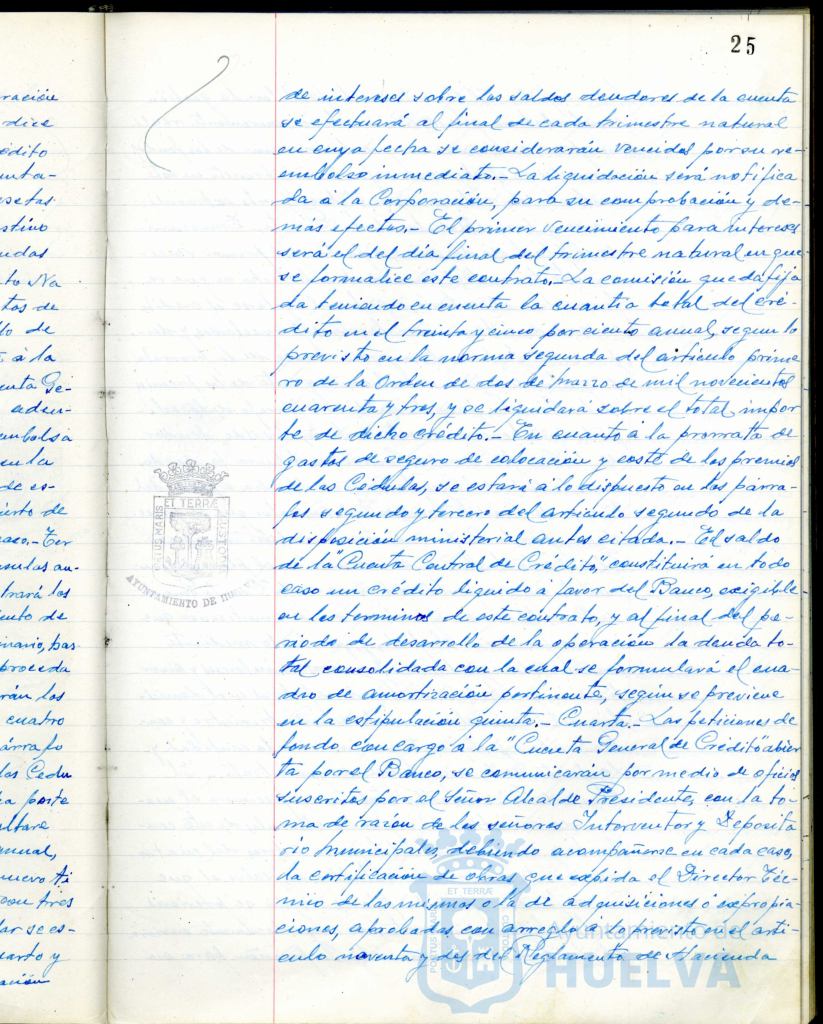 25
de intereses sobre los saldos deudores de la cuenta
se efectuará al final de cada trimestre natural
en cuya fecha se considerarán vencidos por su re-
embolso inmediato.- La liquidación será notifica
da á la Corporación, para su comprobación y de-
más efectos.- El primer vencimiento para intereses
será el del día final del trimestre natural en que
se formalice este contrato.- La comisión queda fija
da teniendo en cuenta la cuantía total del cré-
dito en el treinta y cinco por ciento anual, segun lo
previsto en la norma segunda del articulo prime
ro de la Orden de dos de marzo de mil novecientos
cuarenta y tres, y se liquidará sobre el total impor
te de dicho crédito.- En cuanto á la prorrata de
gastos de seguro de colocación y coste de los premios
de las Cédulas, se estará á lo dispuesto en los párra-
fos segundo y tercero del articulo segundo de la
disposición ministerial antes citada.- El saldo
de la "Cuenta Central de Crédito", constituirá en todo
caso un crédito liquido á favor del Banco, exigible
en los terminos de este contrato, y al final del pe-
riodo de desarrollo de la operación la deuda to-
tal consolidada con la cual se formulará el cua-
dro de amortización pertinente, según se previene
en la estipulación quinta.- Cuarta.- Las peticiones de
fondo con cargo á la "Cuenta General de Crédito" abier
ta por el Banco, se comunicarán por medio de oficios
suscritos por el Señor Alcalde Presidente, con la to-
ma de razón de los señores Interventor y Deposita
rio municipales, debiendo acompañarse en cada caso,
la certificación de obras que expida el Director Téc-
nico de las mismas o la de adquisiciones ó expropia-
ciones, aprobadas con arreglo a lo previsto en el arti-
culo noventa y dos del Reglamento de Hacienda
ración
dice
édito
enta-
esetas
estino
udas
to Na
tos de
lo de
á la
enta Ge-
aden-
embolsa
en la
de es-
ierto de
aso.- Ter
trará los
ento de
inario, pas
proceda
rán los
cuatro
árrafo
las Cedu
parte
ultare
anual,
nuevo ti
con tres
lar se es-
uarto y
ación
PORTUS MARIS ET TERRÆ CUSTODIA
AYUNTAMIENTO DE HUELVA
PORTUS MARIS ET TERRÆ CUSTODIA
Ayuntamiento de
HUELVA